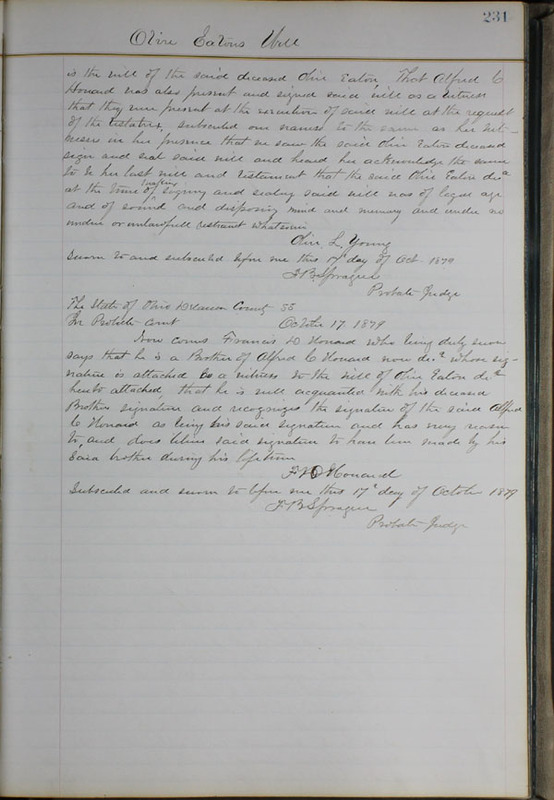 231
Olive Eatons Will
is the will of the said deceased Olive Eaton, That Alfred C
Howard was also present and signed said will as a witness
that they were present at the execution of said will at the request
of the testatrix, subscribed our names to the same as her wit-
nesses in her presence that we saw the said Olive Eaton deceased
sign and seal said will and heard her acknowledge the same
to be her last will and testament that the said Olive Eaton decd
at the time of making signing and sealing said will was of legal age
and of sound and disposing mind and memory and under no
undue or unlawfull restraint whatsoever
Olive L Young
Sworn to and subscribed before me this 17 day of Oct 1879
F B Sprague
Probate Judge
The State of Ohio Delaware County SS
In Probate Court October 17. 1879
Now comes Francis D Howard who being duly sworn
says that he is a Brother of Alfred C Howard now decd whose sig-
nature is attached as a witness to the will of Olive Eaton decd
hereto attached, that he is well acquainted with his deceased
Brothers signature and recognizes the signature of the said Alfred
C Howard as being his said signature and has every reason
to, and does believe said signature to have been made by his
said brother during his lifetime
F D Howard
Subscribed and sworn to before me this 17th day of October 1879
F B Sprague
Probate Judge